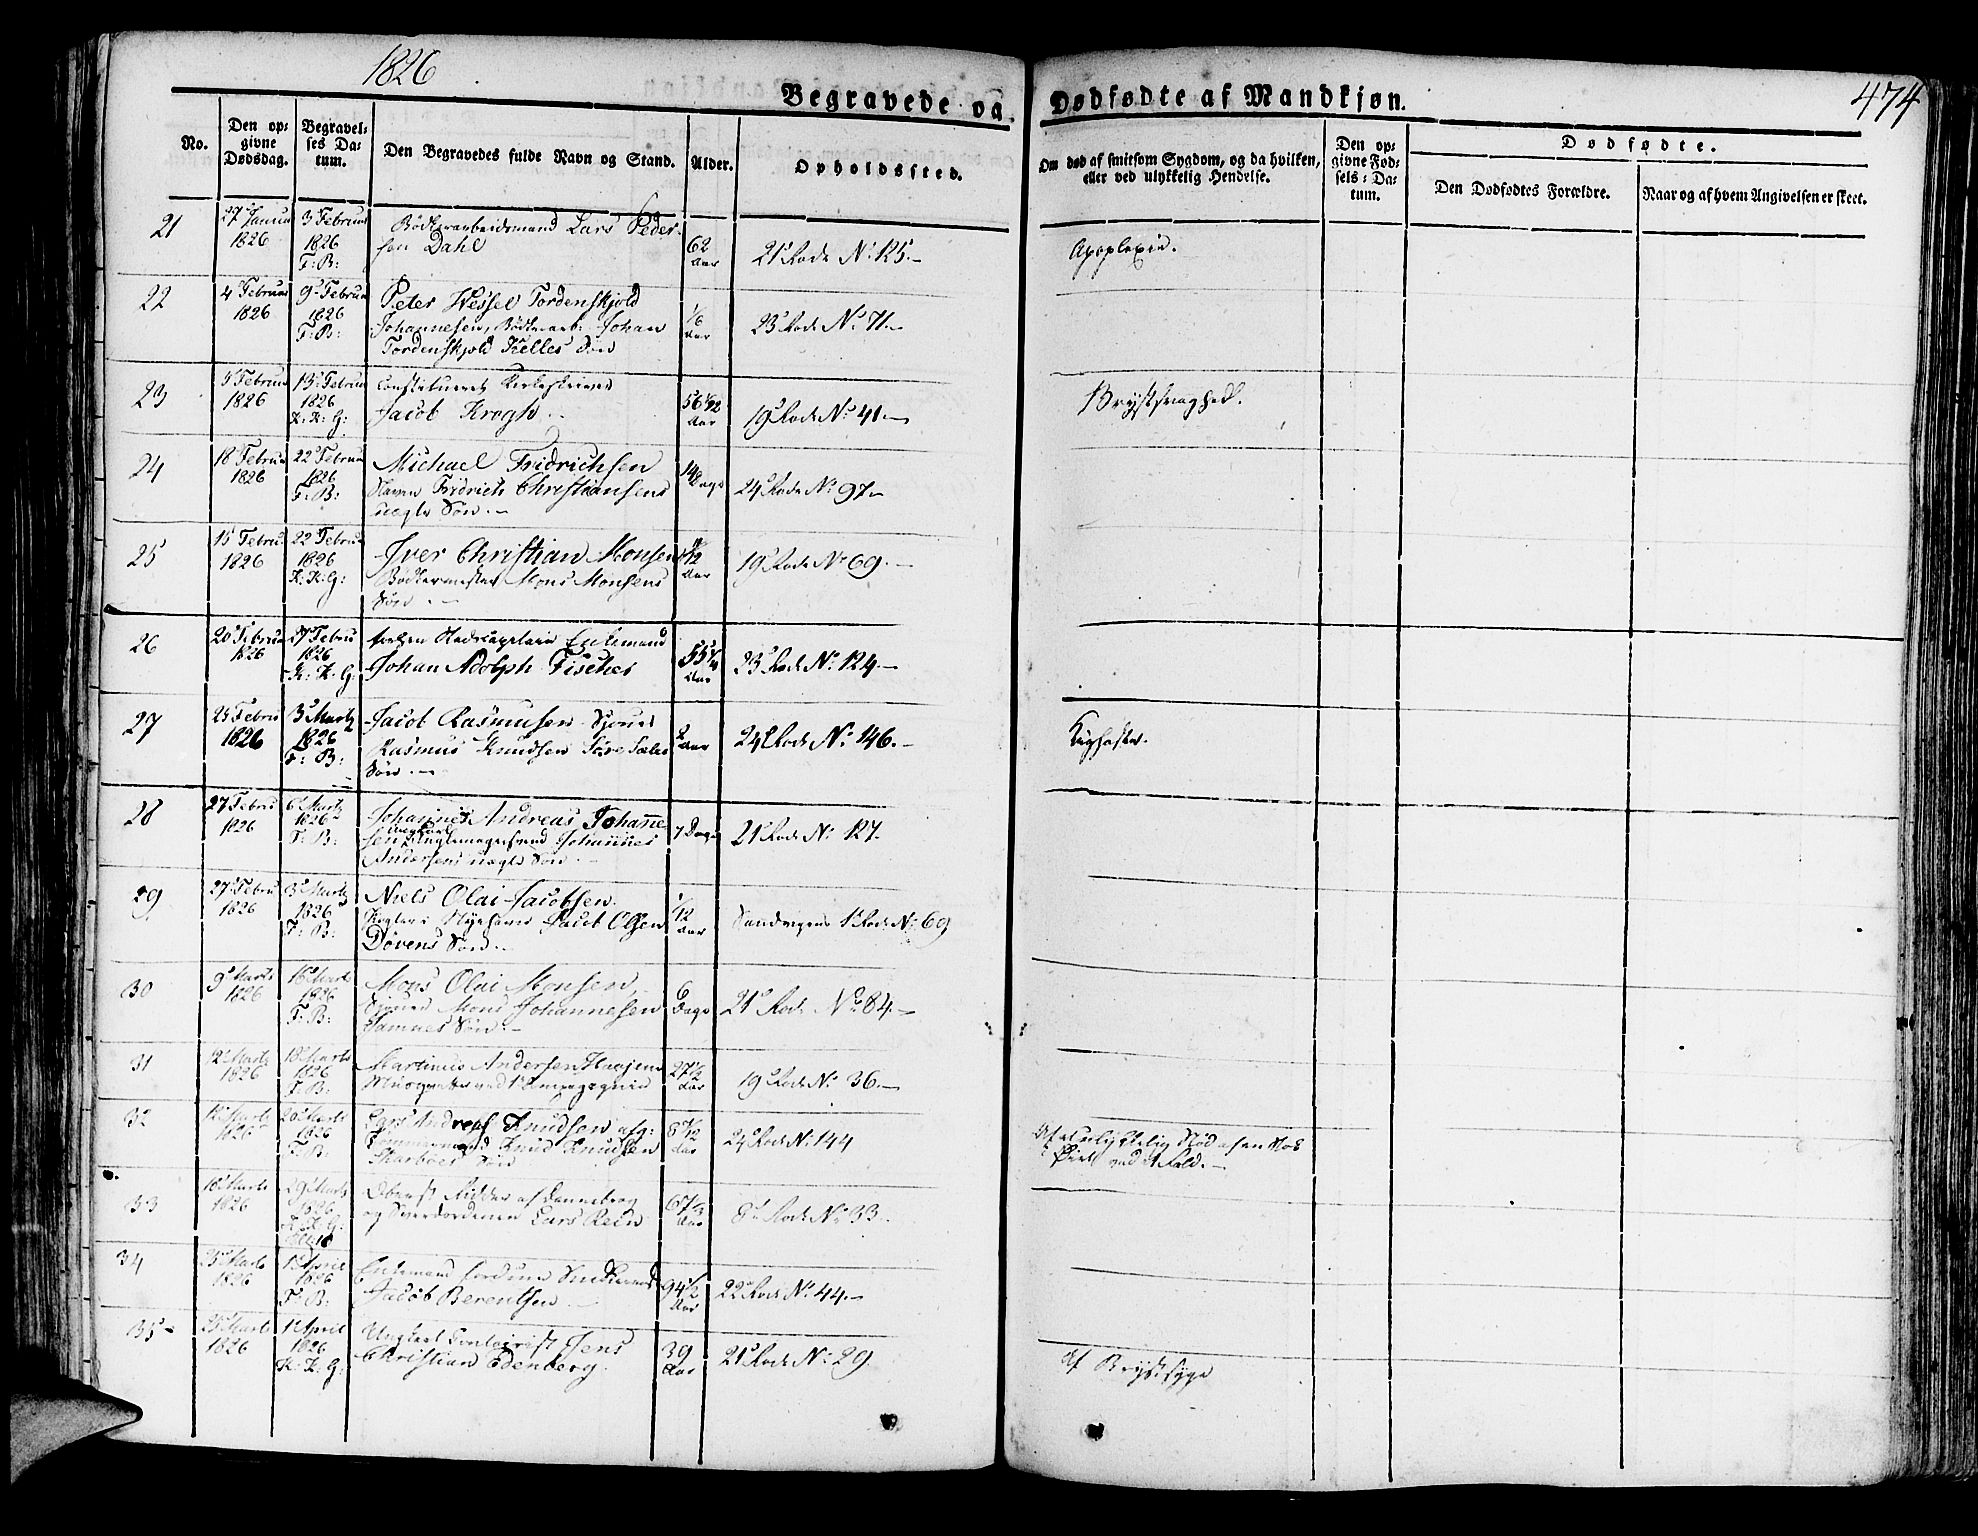 1826
474
Begravede og Dødfødte af Mandkjøn.
No.
Den op=
givne
Dødsdag.
Begravel=
ses Da=
tum.
Den Begravedes fulde Navn og Stand.
Alder.
Opholdssted.
Om død af smitsom Sygdom, og da hvilken,
eller ved ulykkelig Hendelse.
Den op=
givne Fød=
sels=Da=
tum.
Dødfødte.
Den Dødfødtes Forældre.
Naar og af hvem Angivelsen er skeet.
21
27 Januar
1826
3 Februar
1826
F: B:
Bødkerarbeidsmand Lars Peder-
sen Dahl
62
Aar
21 Rode No 125.
Apoplexie.
22
4 Februar
1826
9 Februar
1826
F: B:
Peter Wessel Tordenskjold
Johannesen, Bødkerarb: Johan
Tordenskjold Kelles Søn
1/6
Aar
23 Rode No 71.
23
5 Februar
1826
13 Februar
1826
K: K: G:
Constitueret Kirkeskriver
Jacob Krogh
56 1/12
Aar
19 Rode No 41.
Brystsvaghed.
24
18 Februar
1826
22 Februar
1826
F: B:
Michael Fridrichsen
Fridrich Christiansens
uægte Søn.
14 Dage
24 Rode No 97
25
15 Februar
1826
22 Februar
1826
K: K: G:
Iver Christian Monsen
Bødkermester Mons Monsens
Søn.
Aar
19 Rode No 69.
26
20 Februar
1826
27 Februar
1826
K: K: G:
Enkemand
Johan Adolph Fischer
55
Aar
23 Rode No 124.
27
25 Februar
1826
3 Martz
1826
F: B:
Jacob Rasmusen
Rasmus Knudsen
Søn.
2
Aar
24 Rode No 146.
Kighoste.
28
27 Februar
1826
6 Martz
1826
F: B:
Johannes Andreas Johanne
sen, Johannes
Andersens uægte Søn.
7 Dage
21 Rode No 127.
29
27 Februar
1826
3 Martz
1826
F: B:
Niels Olai Jacobsen.
Jacob Olsen
Døvens Søn.
1/12
Aar
Sandvigens 1 Rode No 69
30
9 Martz
1826
16 Martz
1826
F: B:
Mons Olai Monsen
Mons Johannesen
Søn.
6
Dage
21 Rode No 84.
31
12 Martz
1826
18 Martz
1826
F: B:
Martinus Andersen
27 1/2
Aar
19 Rode No 36.
32
12 Martz
1826
20 Martz
1826
F: B:
Lars Andreas Knudsen afg:
Tømmermand Knud Knudsen
Skarbøes Søn
8
Aar
24 Rode No 144
Af ulykkelig
ved et Fald.
33
18 Martz
1826
29 Martz
1826
K: K: G:
Oberst Ridder af Dannebrog
og Sværdordenen Lars Rein
67 1/3
Aar
8 Rode No 33.
34
25 Martz
1826
1 April
1826
F: B:
Enkemand
Jacob Berentsen
94 1/2
Aar
22 Rode No 44.
35
25 Martz
1826
1 April
1826
K: K: G:
Ungkarl Contoirist Jens
Christian Edenberg.
39
Aar
21 Rode No 29.
Af Brystsyge